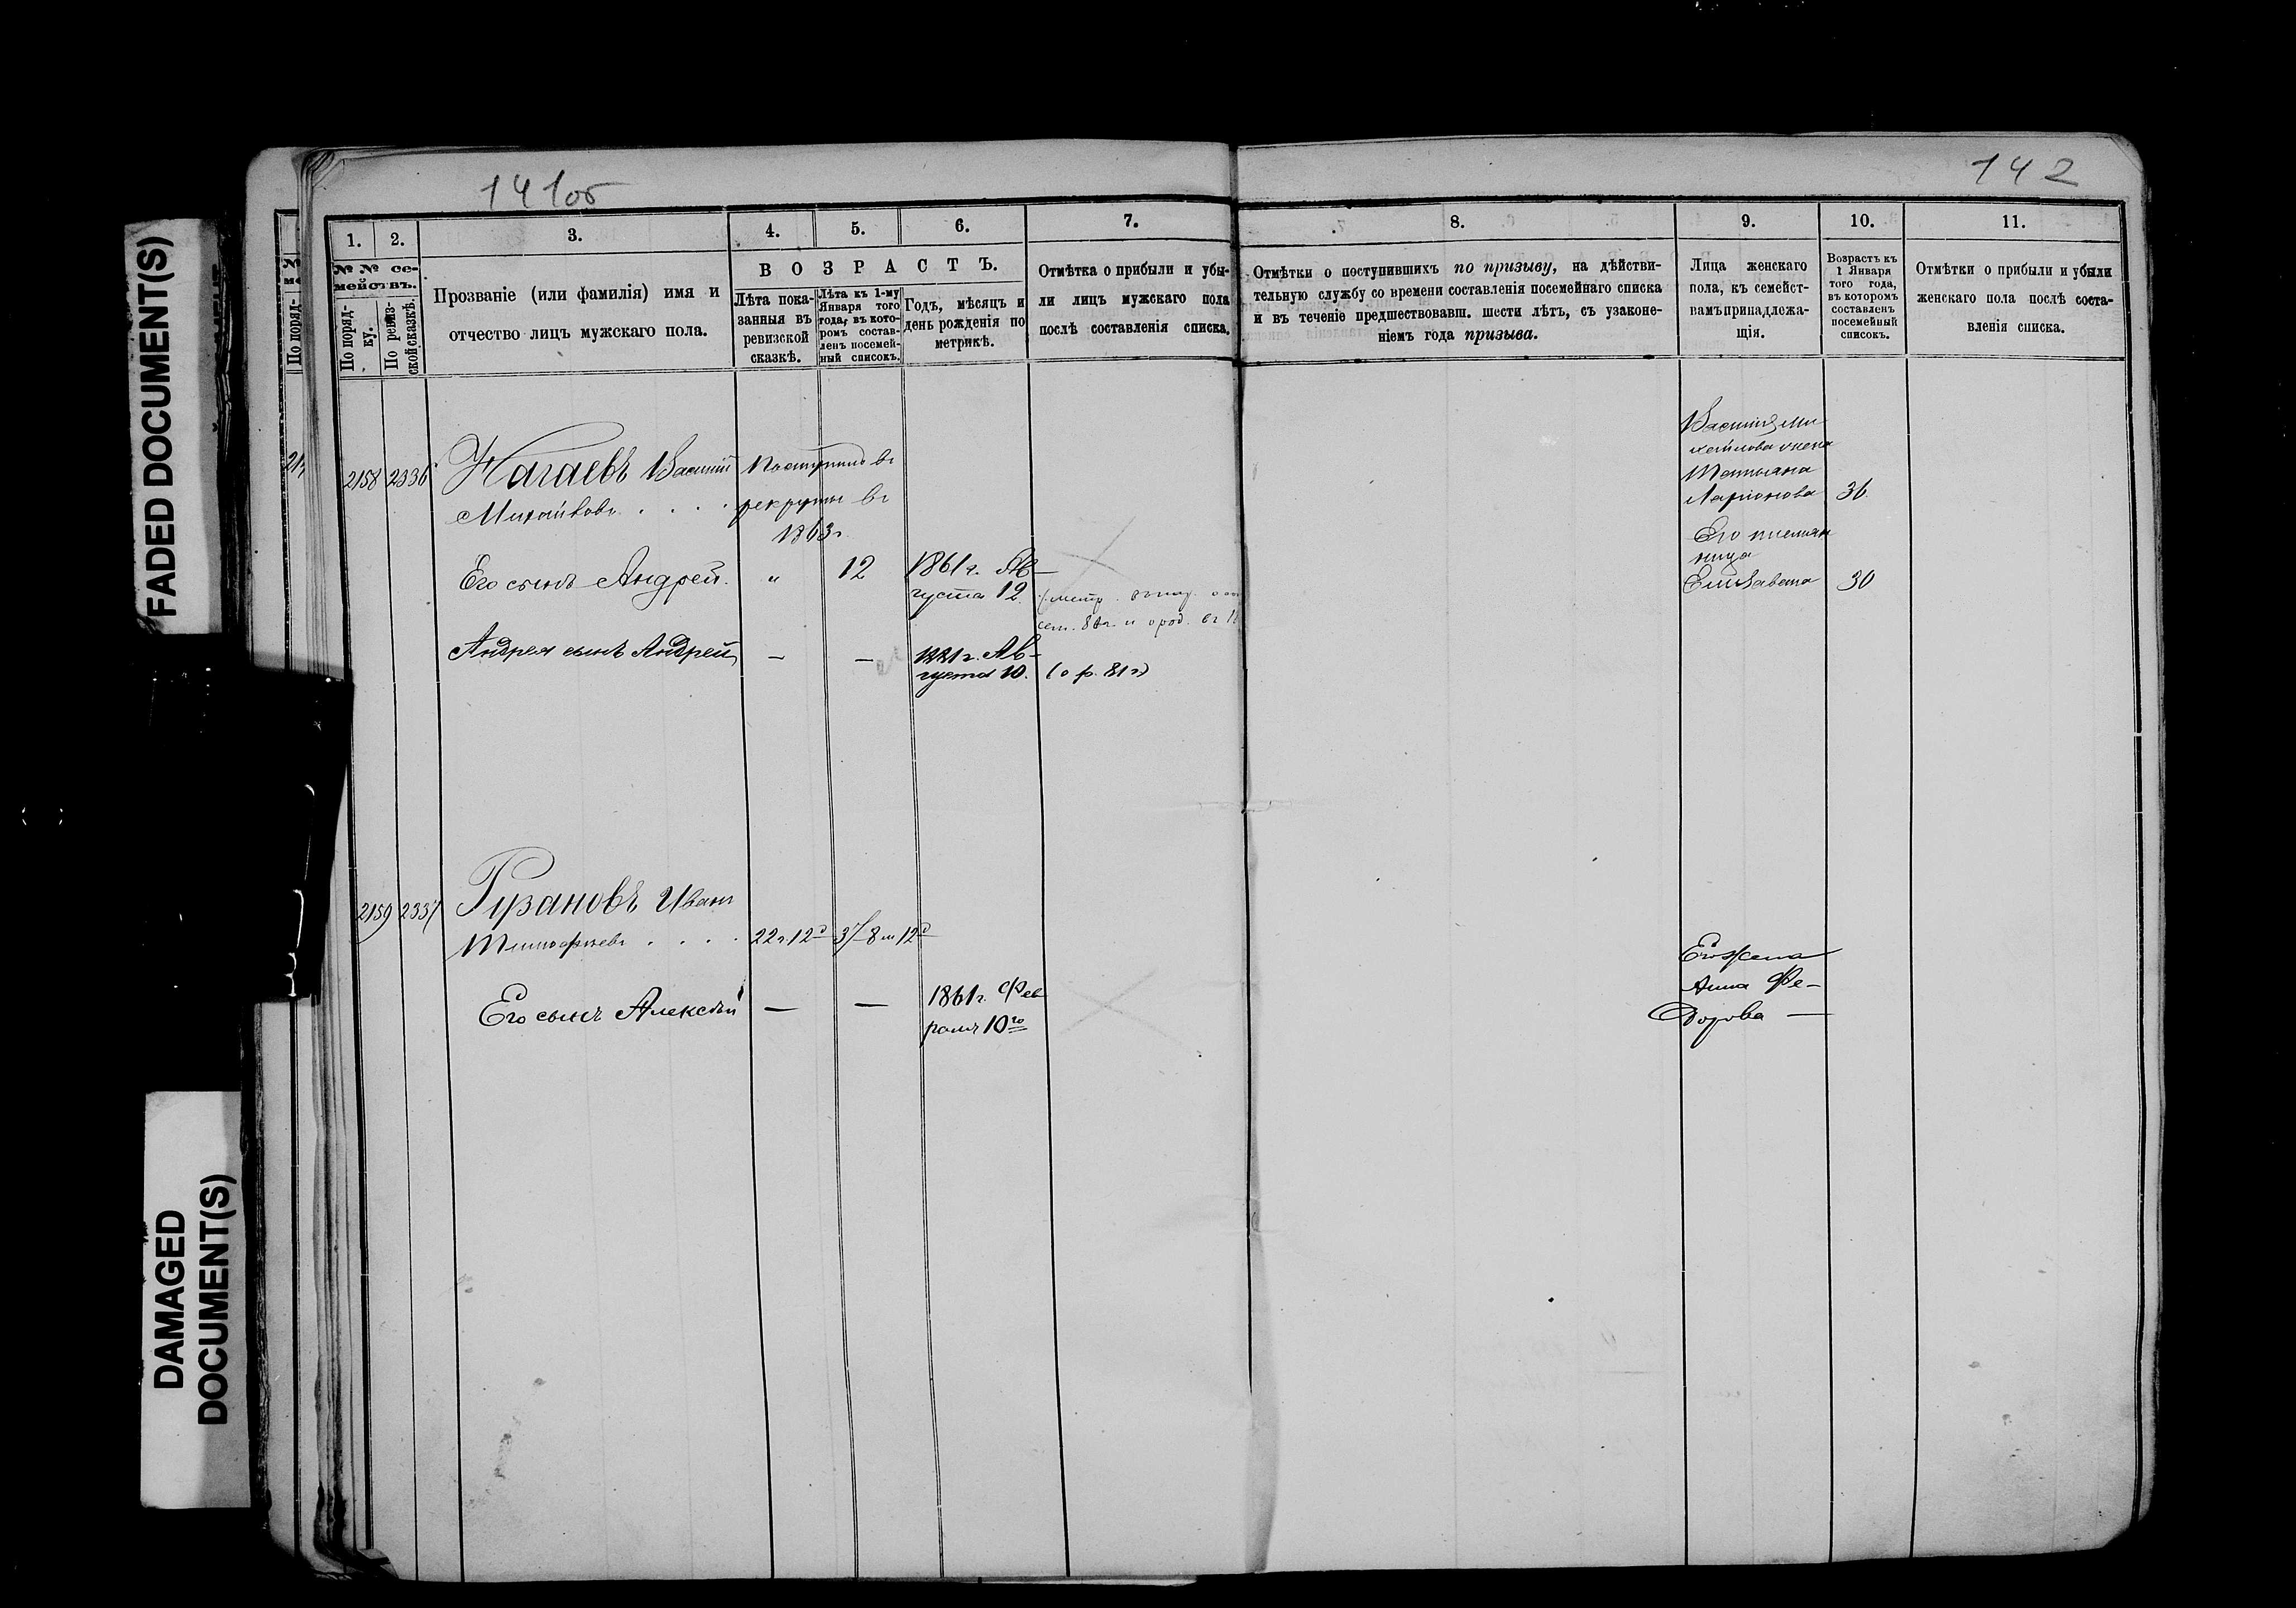 FADED DOCUMENT(S)
DAMAGED
DOCUMENT(S)
141об
142
1.
2.
3.
4.
5.
6.
7.
8.
9.
10.
11.
№ № се-
мействъ.
По поряд-
ку.
По ревиз-
ской сказкѣ.
Прозваніе (или фамилія) имя и
отчество лицъ мужскаго пола.
ВОЗРАСТЪ.
Лѣта пока-
занныя въ
ревизской
сказкѣ.
Лѣта къ 1-му
Января того
года, въ кото-
ромъ состав-
ленъ посемей-
ный списокъ.
Годъ, мѣсяцъ и
день рожденія по
метрикѣ.
Отмѣтка о прибыли и убы-
ли лицъ мужскаго пола
послѣ составленія списка.
Отмѣтки о поступившихъ по призыву, на дѣйстви-
тельную службу со времени составленія посемейнаго списка
и въ теченіе предшествовавш. шести лѣтъ, съ узаконе-
ніемъ года призыва.
Лица женскаго
пола, къ семейст-
вамъ принадлежа-
щія.
Возрастъ къ
1 Января
того года,
въ которомъ
составленъ
посемейный
списокъ.
Отмѣтки о прибыли и убыли
женскаго пола послѣ соста-
вленія списка.
2158 2336 Нагаевъ Василій Поступилъ въ
Михайловъ . . . . рекруты въ
1863г.
Его сынъ Андрей. „ 12 1861г. Ав-
густа 12
Андрея сынъ Андрей — — 1881г. Ав-
густа 10. (о р. 81г)
Василія Ми
хайлова жена
Татьяна
Ларіонова 36
Его племян
ница
Елизавета 30
2159 2337 Гузановъ Иванъ
Тимофѣевъ . . . . 22г.12д 37-8м12д
Его сынъ Алексѣй — — 1861г. Фев
раля 10го
Его жена
Анна Фе-
дорова —